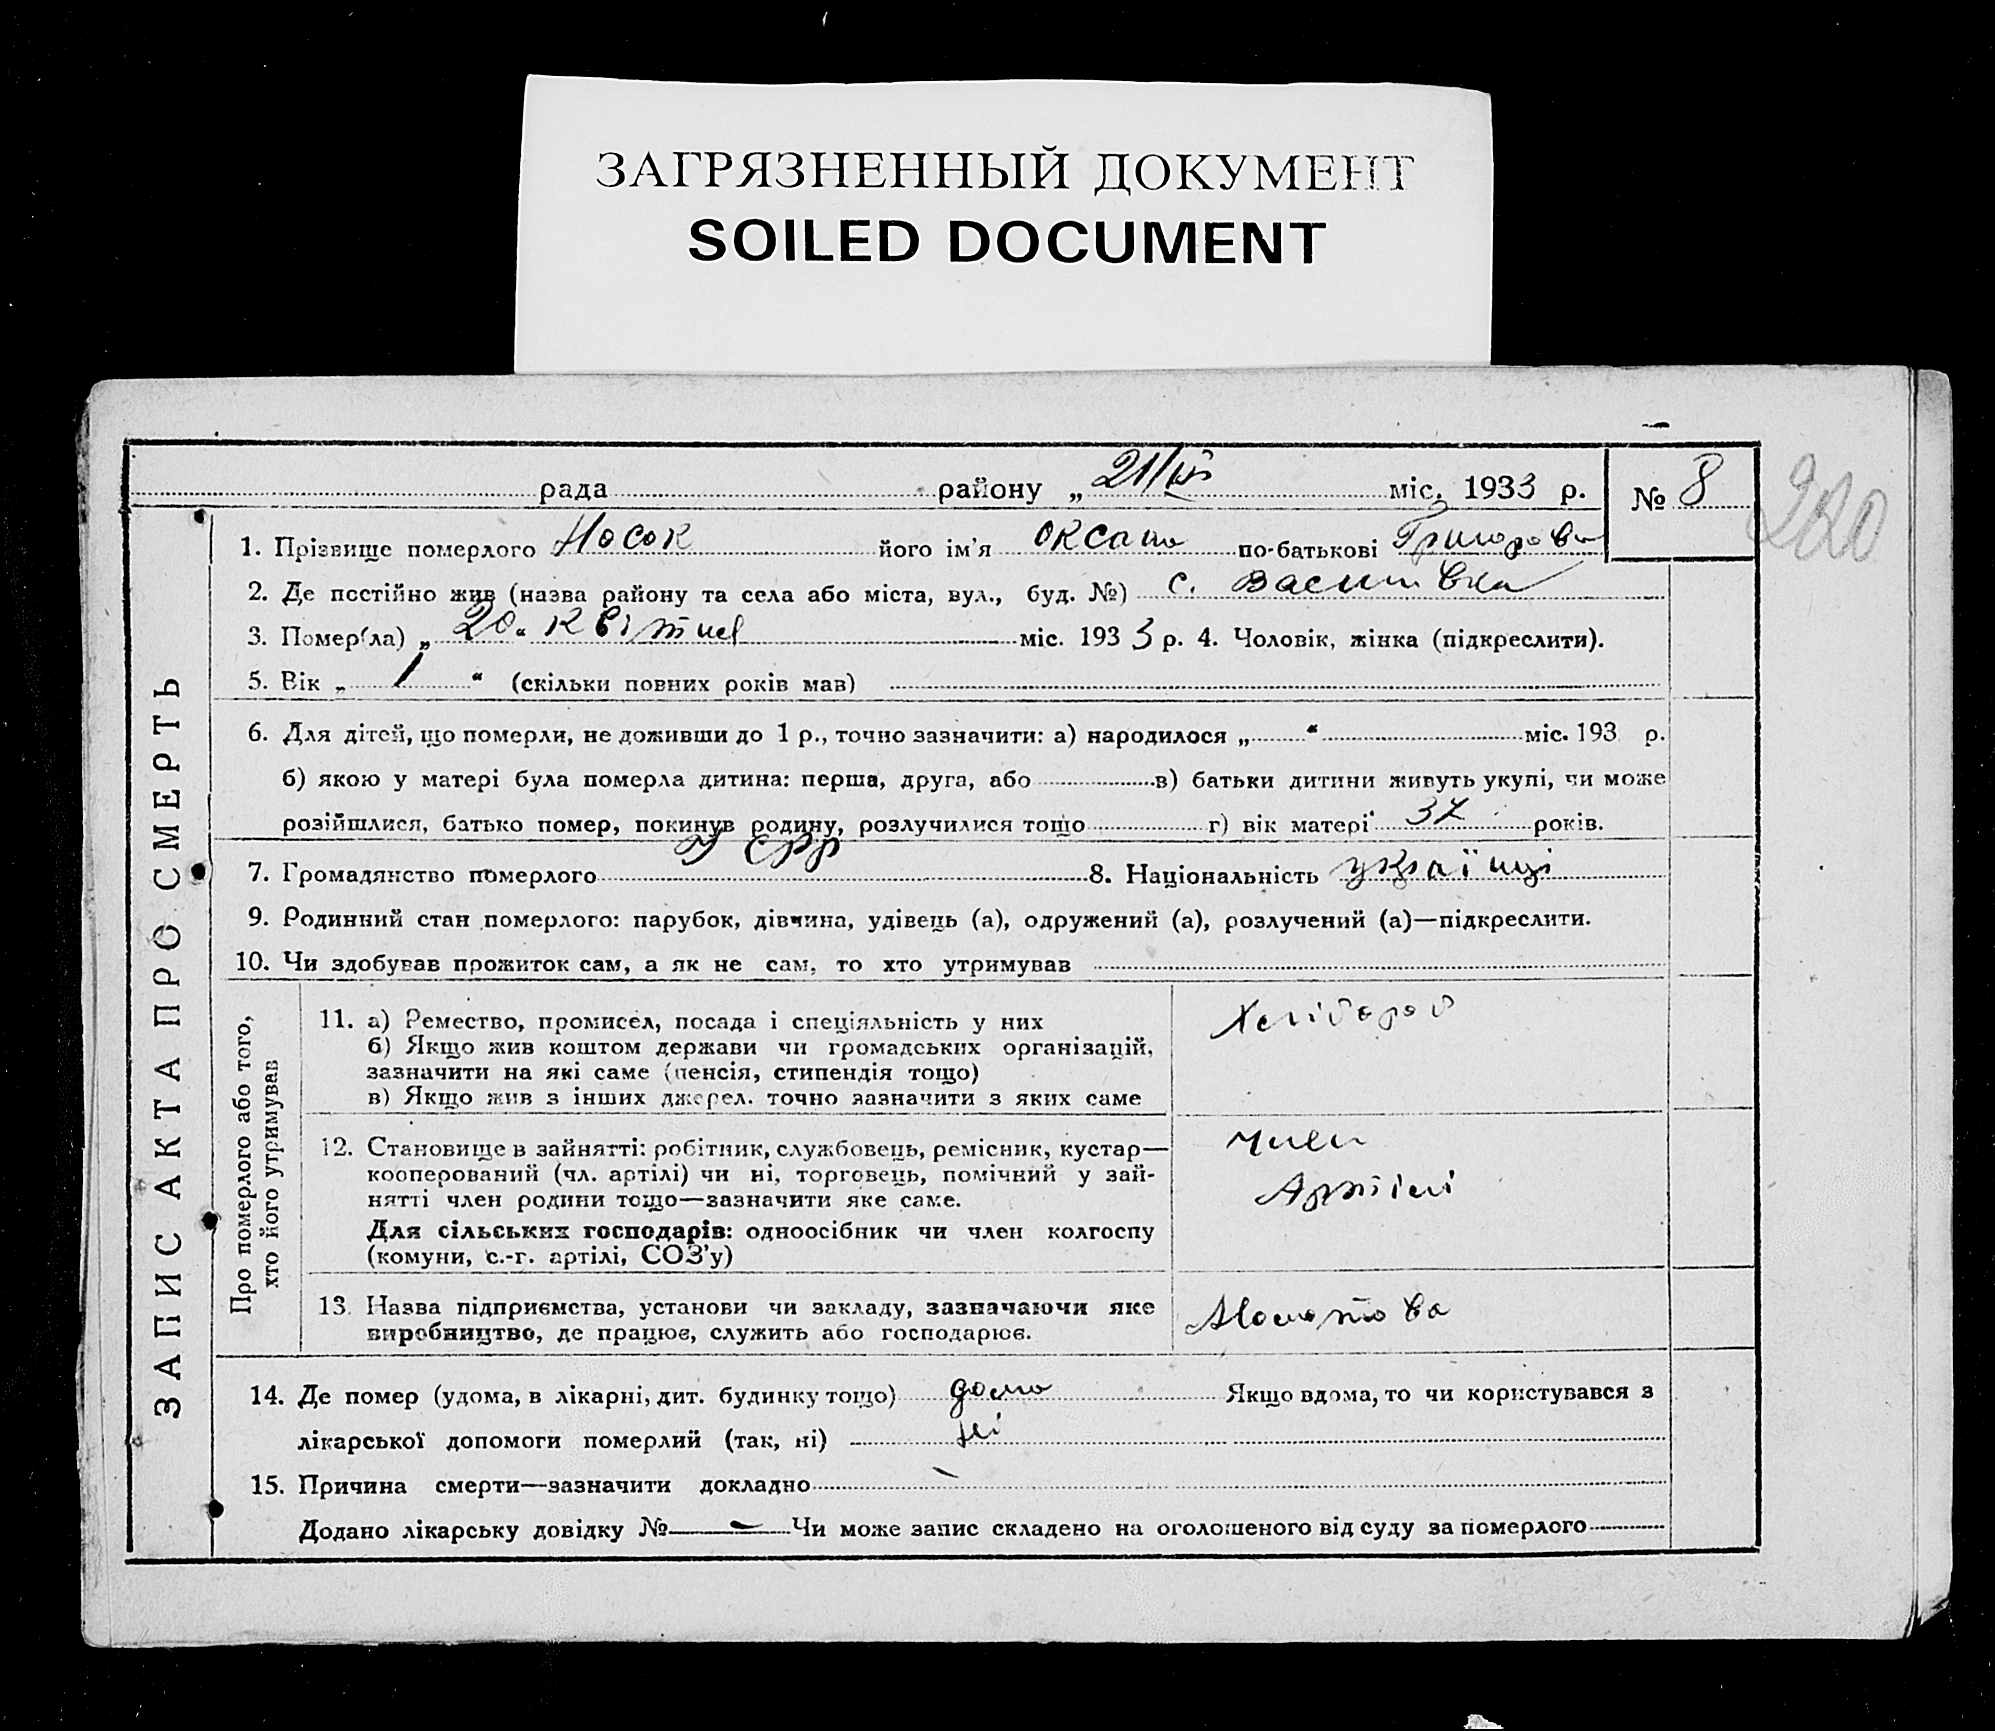 ЗАГРЯЗНЕННЫЙ ДОКУМЕНТ
SOILED DOCUMENT
рада району „ 21/IV міс. 1933 р. № 8
220
ЗАПИС АКТА ПРО СМЕРТЬ
1. Прізвище померлого Носок його ім'я Оксана по-батькові Григоровна
2. Де постійно жив (назва району та села або міста, вул., буд. №) с. Василівка
3. Помер(ла) „ 20 “ квітня міс. 1933 р. 4. Чоловік, жінка (підкреслити).
5. Вік „ 1 “ (скільки повних років мав)
6. Для дітей, що померли, не доживши до 1 р., точно зазначити: а) народилося „ “ міс. 193 р.
б) якою у матері була померла дитина: перша, друга, або в) батьки дитини живуть укупі, чи може
розійшлися, батько помер, покинув родину, розлучилися тощо г) вік матері 37 років.
7. Громадянство померлого УСРР 8. Національність україці
9. Родинний стан померлого: парубок, дівчина, удівець (а), одружений (а), розлучений (а)—підкреслити.
10. Чи здобував прожиток сам, а як не сам, то хто утримував
Про померлого або того,
хто його утримував
11. а) Ремество, промисел, посада і спеціяльність у них Хлібороб
б) Якщо жив коштом держави чи громадських організацій,
зазначити на які саме (пенсія, стипендія тощо)
в) Якщо жив з інших джерел. точно зазначити з яких саме
12. Становище в зайнятті: робітник, службовець, ремісник, кустар— член
кооперований (чл. артілі) чи ні, торговець, помічний у зай- Артілі
нятті член родини тощо—зазначити яке саме.
Для сільських господарів: одноосібник чи член колгоспу
(комуни, с.-г. артілі, СОЗ'у)
13. Назва підприємства, установи чи закладу, зазначаючи яке
виробництво, де працює, служить або господарює.
14. Де помер (удома, в лікарні, дит. будинку тощо) дома Якщо вдома, то чи користувався з
лікарської допомоги померлий (так, ні) ні
15. Причина смерти—зазначити докладно
Додано лікарську довідку № — Чи може запис складено на оголошеного від суду за померлого